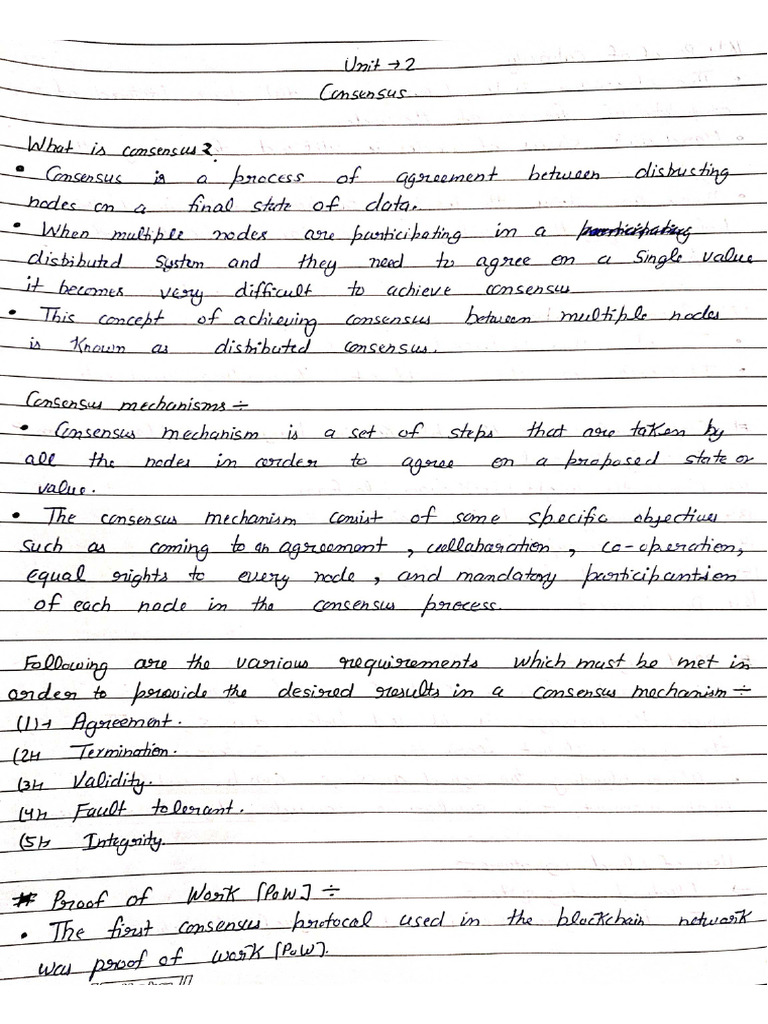 Unit → 2
Consensus
What is consensus?
• Consensus is a process of agreement between disbusting
nodes on a final state of data.
• When multiple nodes are participating in a participating
distributed system and they need to agree on a single value
it becomes very difficult to achieve consensus
• This concept of achieving consensus between multiple nodes
is known as distributed consensus.
Consensus mechanisms ÷
• Consensus mechanism is a set of steps that are taken by
all the nodes in order to agree on a proposed state or
value.
• The consensus mechanism consist of some specific objectives
such as coming to an agreement, collabaration, co-operation,
equal rights to every node, and mandatory participantion
of each node in the consensus process.
Following are the various requirements which must be met in
order to provide the desired results in a consensus mechanism ÷
(1)→ Agreement.
(2)→ Termination.
(3)→ Validity.
(4)→ Fault tolerant.
(5)→ Integrity.
# Proof of Work [PoW] ÷
• The first consensus protocal used in the blockchain network
was proof of work [PoW].